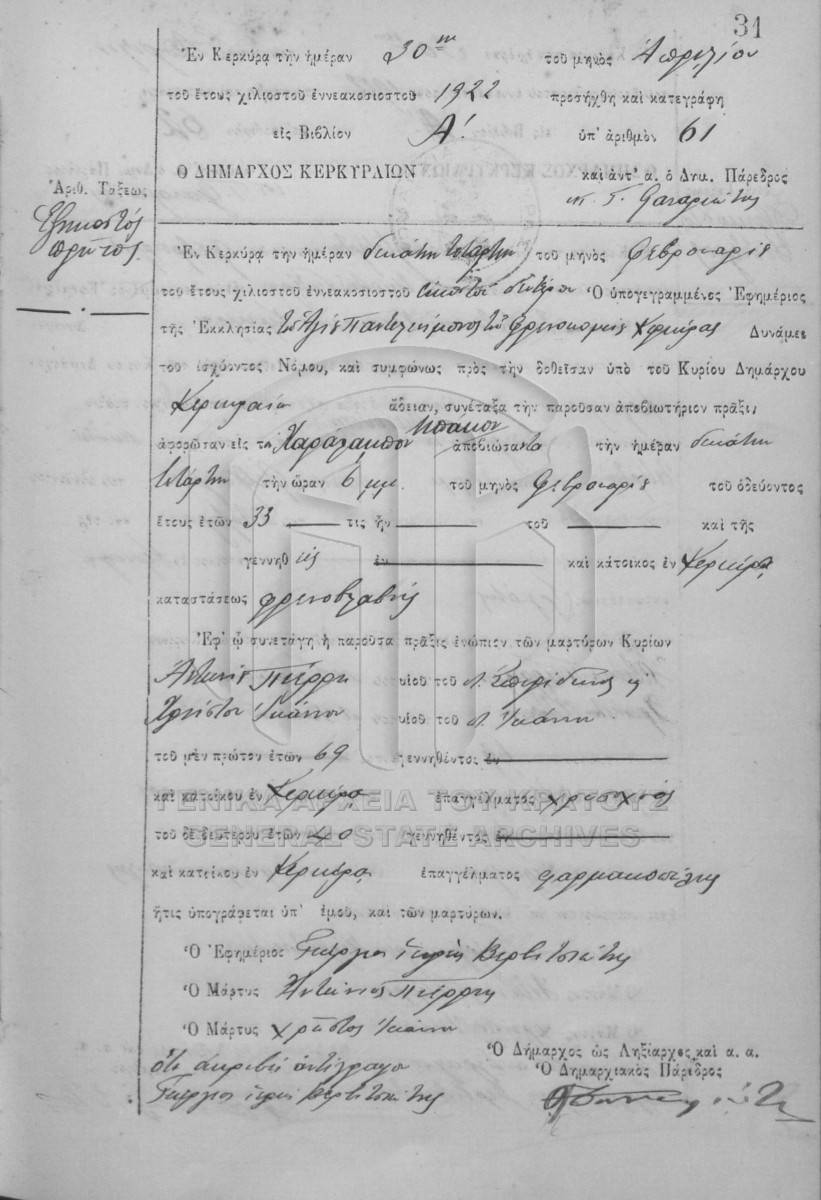 31
Ἐν Κερκύρᾳ τὴν ἡμέραν 30ην τοῦ μηνὸς Ἀπριλίου
τοῦ ἔτους χιλιοστοῦ ἐννεακοσιοστοῦ 1922 προσήχθη καὶ κατεγράφη
εἰς Βιβλίον Α! ὑπ' ἀριθμὸν 61
Ο ΔΗΜΑΡΧΟΣ ΚΕΡΚΥΡΑΙΩΝ καὶ ἀντ' α. ὁ Δημ. Πάρεδρος
Ἀριθ. Τάξεως
Ἑξηκοστὸς
πρῶτος
Ἐν Κερκύρᾳ τὴν ἡμέραν δεκάτην τετάρτην τοῦ μηνὸς Φεβρουαρίου
τοῦ ἔτους χιλιοστοῦ ἐννεακοσιοστοῦ εἰκοστοῦ δευτέρου Ὁ ὑπογεγραμμένος Ἐφημέριος
τῆς Ἐκκλησίας τοῦ Ἁγίου Παντελεήμονος τοῦ Φρενοκομείου Κερκύρας Δυνάμει
τοῦ ἰσχύοντος Νόμου, καὶ συμφώνως πρὸς τὴν δοθεῖσαν ὑπὸ τοῦ Κυρίου Δημάρχου
Κερκυραίων ἄδειαν, συνέταξα τὴν παροῦσαν ἀποβιωτήριον πρᾶξιν,
ἀφορῶσαν εἰς τὸν Χαράλαμπον Μπάκον ἀποβιώσαντα τὴν ἡμέραν δεκάτην
τετάρτην τὴν ὥραν 6 μμ. τοῦ μηνὸς Φεβρουαρίου τοῦ ὁδεύοντος
ἔτους ἐτῶν 33 τις ἦν τοῦ καὶ τῆς
γεννηθεὶς ἐν καὶ κάτοικος ἐν Κερκύρᾳ
καταστάσεως φρενοβλαβής
Ἐφ' ᾧ συνετάγη ἡ παροῦσα πρᾶξις ἐνώπιον τῶν μαρτύρων Κυρίων
Ἀντωνίου Πιέρρη υἱοῦ τοῦ π. Σπυρίδωνος κ'
Χρήστου Ἰωάννου υἱοῦ τοῦ π. Ἰωάννου
τοῦ μὲν πρώτου ἐτῶν 69 γεννηθέντος ἐν
καὶ κατοίκου ἐν Κερκύρᾳ ἐπαγγέλματος χρυσοχόος
τοῦ δὲ δευτέρου ἐτῶν 40 γεννηθέντος ἐν
καὶ κατοίκου ἐν Κερκύρᾳ ἐπαγγέλματος φαρμακοπώλης
ἥτις ὑπογράφεται ὑπ' ἐμοῦ, καὶ τῶν μαρτύρων.
Ὁ Ἐφημέριος Γεώργιος ἱερεὺς Βερβιτσιώτης
Ὁ Μάρτυς Ἀντώνιος Πιέρρης
Ὁ Μάρτυς Χρῆστος Ἰωάννου
Ὁ Δήμαρχος ὡς Ληξίαρχος καὶ α. α.
Ὁ Δημαρχιακὸς Πάρεδρος
ὅτι ἀκριβὲς ἀντίγραφον
Γεώργιος ἱερεὺς Βερβιτσιώτης
ΓΕΝΙΚΑ ΑΡΧΕΙΑ ΤΟΥ ΚΡΑΤΟΥΣ
GENERAL STATE ARCHIVES